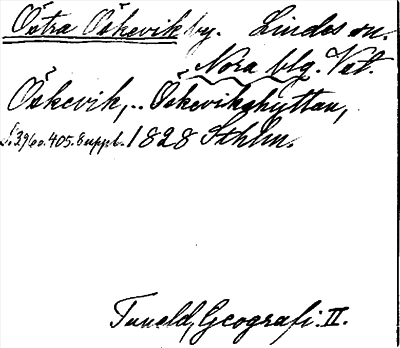 Östra Öskevik by. Lindes o.
Nora blg. Vet.
Öskevik, .. Öskevikshyttan,
S. 396 o. 405. Suppl. 1828 Sthlm.
Tuneld, Geografi. II.